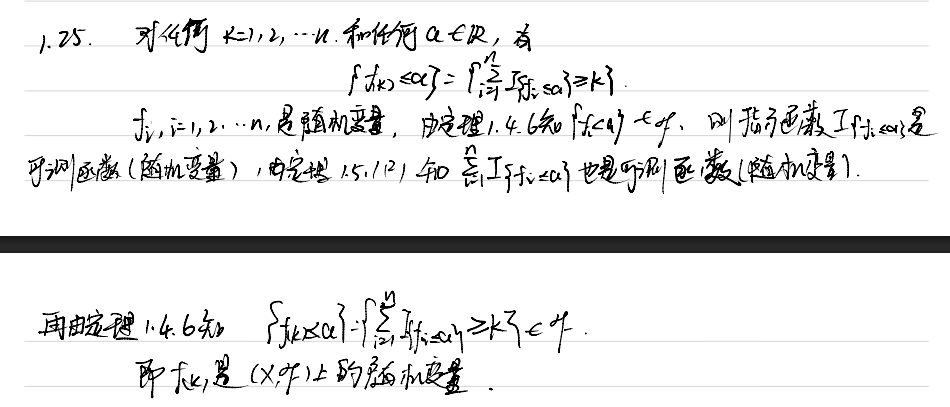 1.25. 对任何 k=1,2,…n.和任何 a∈R,有
{f(k)≤a}={∑ⁿᵢ₌₁ I{fᵢ≤a}≥k}.
fᵢ,i=1,2…n,是随机变量,由定理1.4.6知{fᵢ≤a}∈𝓕.则指示函数I{fᵢ≤a}是
可测函数(随机变量),由定理1.5.1(2)知∑ⁿᵢ₌₁ I{fᵢ≤a}也是可测函数(随机变量).
再由定理1.4.6知 {f(k)≤a}={∑ⁿᵢ₌₁ I{fᵢ≤a}≥k}∈𝓕.
即f(k)是(X,𝓕)上的随机变量.